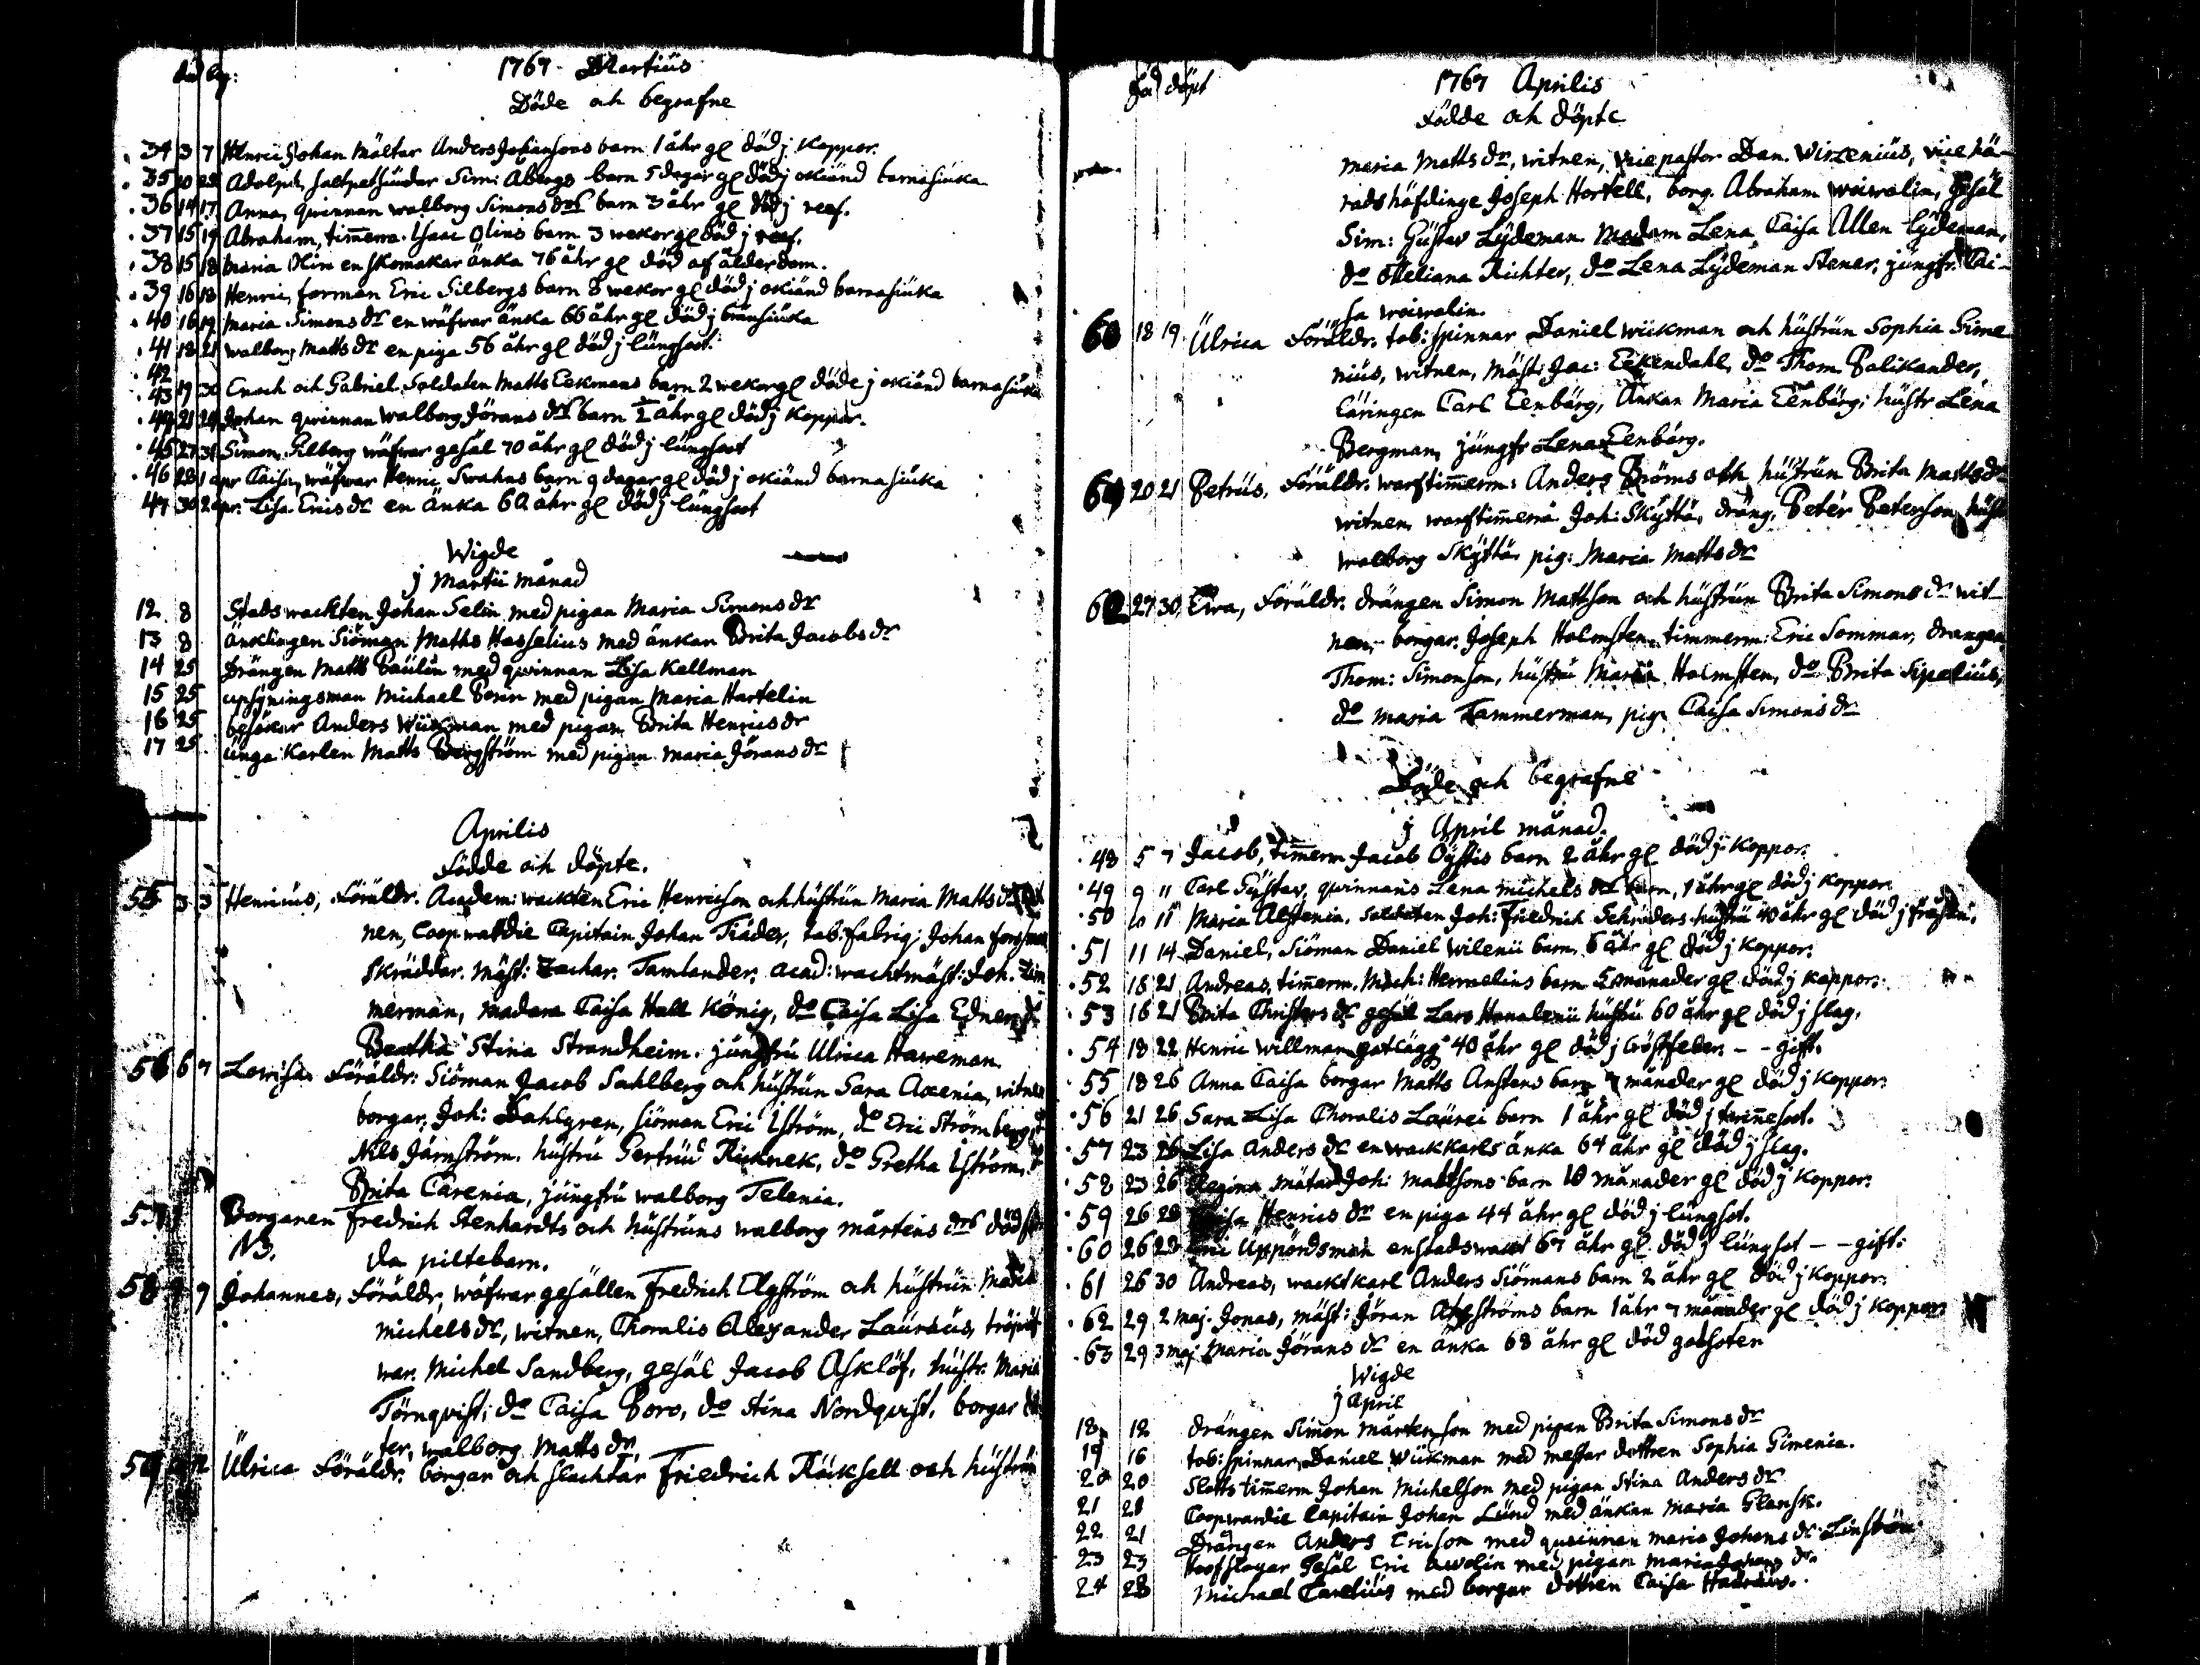 död beg:
1767 Martius
Döde och begrafne
34 3 7 Henric Johan Mältar Anders Johansons barn 1 åhr gl död j Koppor.
35 10 22 Adolph, saltpetsiudar Sim: Abergs barn 5 dagar gl död j okiänd barnasiuka
36 14 17 Anna, qwinnan walborg Simons drs barn 3 åhr gl död j reef.
37 15 19 Abraham, timmerm. Isaac Olins barn 3 wekor gl död j reef.
38 15 18 Maria Olin en skomakar änka 76 åhr gl död af ålderdom.
39 16 18 Henric, forman Eric Silbergs barn 8 wekor gl död j okiänd barnasiuka
40 16 19 Maria Simons dr en wäfwar änka 66 åhr gl död j bränsiuka
41 18 21 walborg Matts dr en piga 56 åhr gl död j lungsoot.
42
43 19 30 Enoch och Gabriel Soldaten Matts Eekmans barn 2 wekor gl döde j okiänd barnasiuka
44 21 24 Johan qwinnan walborg Jörans drs barn ½ åhr gl död j Koppor.
45 27 31 Simon Silberg wäfwar gesäl 70 åhr gl död j lungsoot
46 28 1 apr Caisa, wäfwar Henric Swahns barn 9 dagar gl död j okiänd barnasiuka
47 30 2 apr. Lisa Erics dr en änka 60 åhr gl död j lungsoot
Wigde
j Martii månad
12 8 Stads wackten Johan Selin med pigan Maria Simons dr
13 8 änklingen Siöman Matts Hasselius med änkan Brita Jacobs dr
14 25 Drängen Matts Paulin med qwinnan Lisa Kellman
15 25 upsyningsman Michael Bonn med pigan Maria Hartelin
16 25 besökar Anders Wiikman med pigan Brita Henrics dr
17 25 unga Karlen Matts Bergström med pigan Maria Jörans dr
Aprilis
Födde och döpte.
55 3 3 Henricus, Föräldr. Academ: wackten Eric Henricson och hustrun Maria Matts dr
nen, Coopwardie Capitain Johan Träder, tob: fabriq: Johan
Skräddar. mäst: Zachar. Tamlander, acad: wachtmäst: Joh. Zim
merman, madam Caisa Hall König, do Caisa Lisa
Beatha Stina Strandheim. jungfru Ulrica Haweman.
56 6 7 Lovisa Föräldr: Siöman Jacob Sahlberg och hustrun Sara Axenia, witnen
borgar. Joh: Dahlgren, siöman Eric Iström, do Eric Strömberg
Nils Järnström. hustru Gertrud do Gretha Iström,
Brita Carenia, jungfru walborg Telenia.
57 Borgaren Fredrich Stenhardts och hustruns walborg Mårtens drs dödföd
NB. da piltebarn.
58 7 9 Johannes, Föräldr, wäfwar gesällen Fredrich Elgström och hustrun Maria
Michels dr, witnen, Choralis Alexander Lauraeus,
war. Michel Sandberg, gesäl Jacob Asklöf, hustr. Maria
Törnqvist, do Caisa Boro, do Stina Nordqvist, borgar dot
ter, walborg Matts dr.
59 Ulrica Föräldr. borgar och slachtar Friedrich Räiksell och hustrun
föd döpt
1767 Aprilis
Födde och döpte
Maria Matts dr, witnen, vice pastor Dan. Wirzenius, vice hä-
radshöfdinge Joseph Hortell, borg. Abraham woiwalin, Gesäl
Sim: Gustav Lydeman. Madam Lena Caisa Allen Lydeman,
do Richter, do Lena Lydeman Stener, jungfr. Cai-
sa woiwalin.
60 18 19 Ulrica Föräldr. tob: spinnar Daniel wiikman och hustrun Sophia Gime
nius, witnen, mäst: Jac: Eekendahl, do Thom Palikander,
Eenbärg, Änkan Maria Eenbärg, hustr Lena
Bergman, jungfr Lena Eenbärg.
61 20 21 Petrus, Föräldr. warftimmerm: Anders Bröms och hustrun Brita Matts dr
witnen, warftimmerm. Joh: Skyttä, dräng, Peter Peterson, hust
walborg Skyttä, pig: Maria Matts dr
62 27 30 Ewa, Föräldr. drängen Simon Mattson och hustrun Brita Simons dr wit-
nen, borgar. Joseph Holmsten, timmerm: Eric Sommar, drangen
Thom: Simonson, hustru Maria Holmsten, do Brita Sipelius,
do Maria Tammerman, pig. Caisa Simons dr
Döde och begrafne
j April månad.
48 5 7 Jacob, timmerm Jacob Oystis barn 2 åhr gl död j Koppor.
49 9 11 Carl Gustav, qwinnans Lena Michels drs barn, 1 åhr gl död j Koppor.
50 10 11 Maria Alstenia, Soldaten Joh: Friedrich Schröders hustru 40 åhr gl död j
51 11 14 Daniel, Siöman Daniel Wilenii barn, 6 åhr gl död j Koppor.
52 18 21 Andreas, timmerm. Mich: Hermelins barn 5 månader gl död j Koppor.
53 16 21 Brita Christers dr gesäl Lars Honalenii hustru 60 åhr gl död j slag.
54 18 22 Henric Willman 40 åhr gl död j bröstfeber. - - gift.
55 18 26 Anna Caisa borgar Matts Anstens barn 7 månader gl död j Koppor.
56 21 26 Sara Lisa Choralis Laurei barn 1 åhr gl död j twinesoot.
57 23 26 Lisa Anders dr en wacktkarls änka 64 åhr gl död j slag.
58 23 26 Regina mätar Joh: Mattsons barn 10 månader gl död j Koppor.
59 26 28 Henrics dr en piga 44 åhr gl död j lungsot.
60 26 29 Eric Uppördsman en stadswact 67 åhr gl död j lungsot - - gift.
61 26 30 Andreas, wacktkarl Anders Siömans barn 2 åhr gl död j Koppor.
62 29 2 maj. Jonas, mäst: Jöran barn 1 åhr 7 månader gl död j Koppor.
63 29 3 maj Maria Jörans dr en änka 68 åhr gl död
Wigde
j April
18 12 drängen Simon Mårtenson med pigan Brita Simons dr
19 16 tob: spinnar Daniel Wiikman med mestar dottren Sophia Gimenia.
20 20 Slotts timmerm Johan Michelson med pigan Stina Anders dr
21 21 Coopwardie Capitain Johan Lund med änkan Maria Glansk.
22 21 Drängen Anders Ericson med qwinnan Maria Johans dr Linström
23 23 Hoofslagar Gesäl Eric Awolin med pigan Maria Johans dr.
24 28 Michael Carelius med borgar dottren Caisa